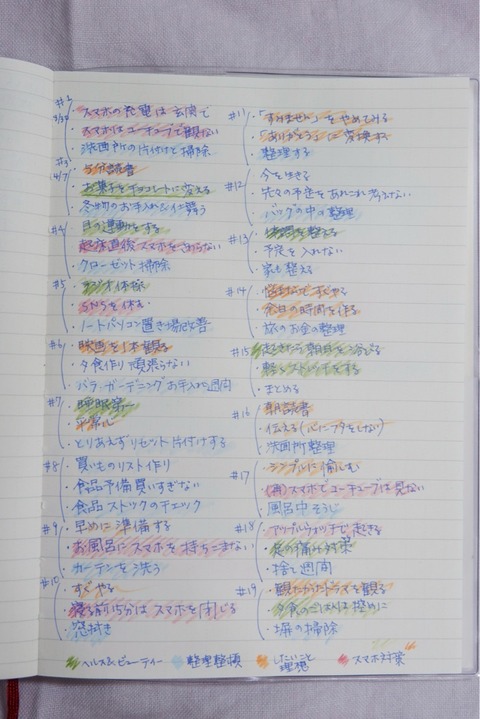 #1
3/30
・スマホの充電は玄関で
・スマホはユーチューブで観ない
・洗面所の片付けと掃除
#3
4/7
・5分読書
・お菓子をチョコレートに変える
・冬物のお手入れ
#4
・目の運動をする
・起床直後スマホをさわらない
・クローゼット掃除
#5
・ラジオ体操
・休む
・ノートパソコン置き場改善
#6
・映画を1本観る
・夕食作り頑張らない
・バラ・ガーデニングお手入れ週間
#7
・睡眠第一
・平常心
・とりあえずリセット片付けする
#8
・買いものリスト作り
・食品予備買いすぎない
・食品ストックのチェック
#9
・早めに準備する
・お風呂にスマホを持ちこまない
・カーテンを洗う
#10
・すぐやる
・寝る前15分はスマホを閉じる
・窓拭き
#11
・「すみません」をやめてみる
・「ありがとう」に変換する
・整理する
#12
・今を生きる
・先々の予定をあれこれ考えない
・バッグの中の整理
#13
・体調を整える
・予定を入れない
・家も整える
#14
・悩まないですぐやる
・余白の時間を作る
・旅のお金の整理
#15
・起きたら朝日を浴びる
・軽いストレッチをする
・まとめる
#16
・朝読書
・伝える(心にフタをしない)
・洗面所整理
#17
・シンプルに愉しむ
・(再)スマホでユーチューブは見ない
・風呂中そうじ
#18
・アップルウォッチで起きる
・食の痛み対策
・捨て週間
#19
・観たかったドラマを観る
・夕食のごはんは控えめに
・塀の掃除
ヘルス&ビューティー 整理整頓 したいこと 理想 スマホ対策